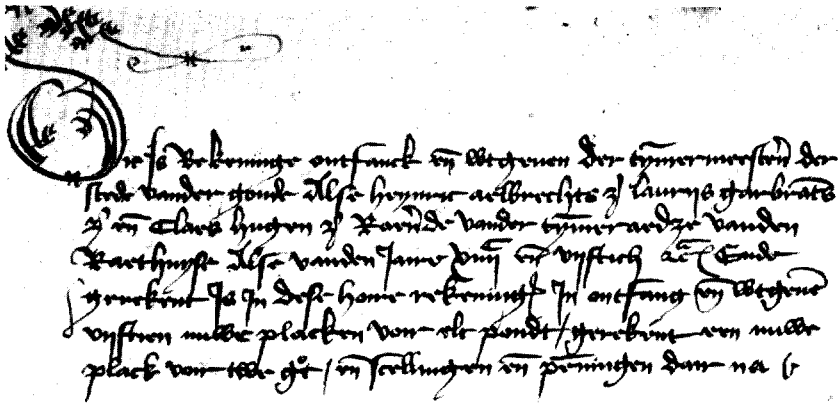 Die is Rekeninge ontfanck en̄ wtgeuen der tym̄ermeesterē der
stede vander goude Alse heynric aelbrechts zᵒ lauriis garbrants
zᵒ en̄ Claes hugen zᵒ Raer̄nde vander tym̄eraedze vanden
Raethuyse Alse vanden Jaire en̄ vijftich Ende
gerekent Is In dese hoire rekening In ontfang en̄ wtgeuē
vijftien nuwe placken voir elc pondt / gerekent een nuwe
plack voir twe gͦt / en̄ scellingen en̄ pēningen dair na